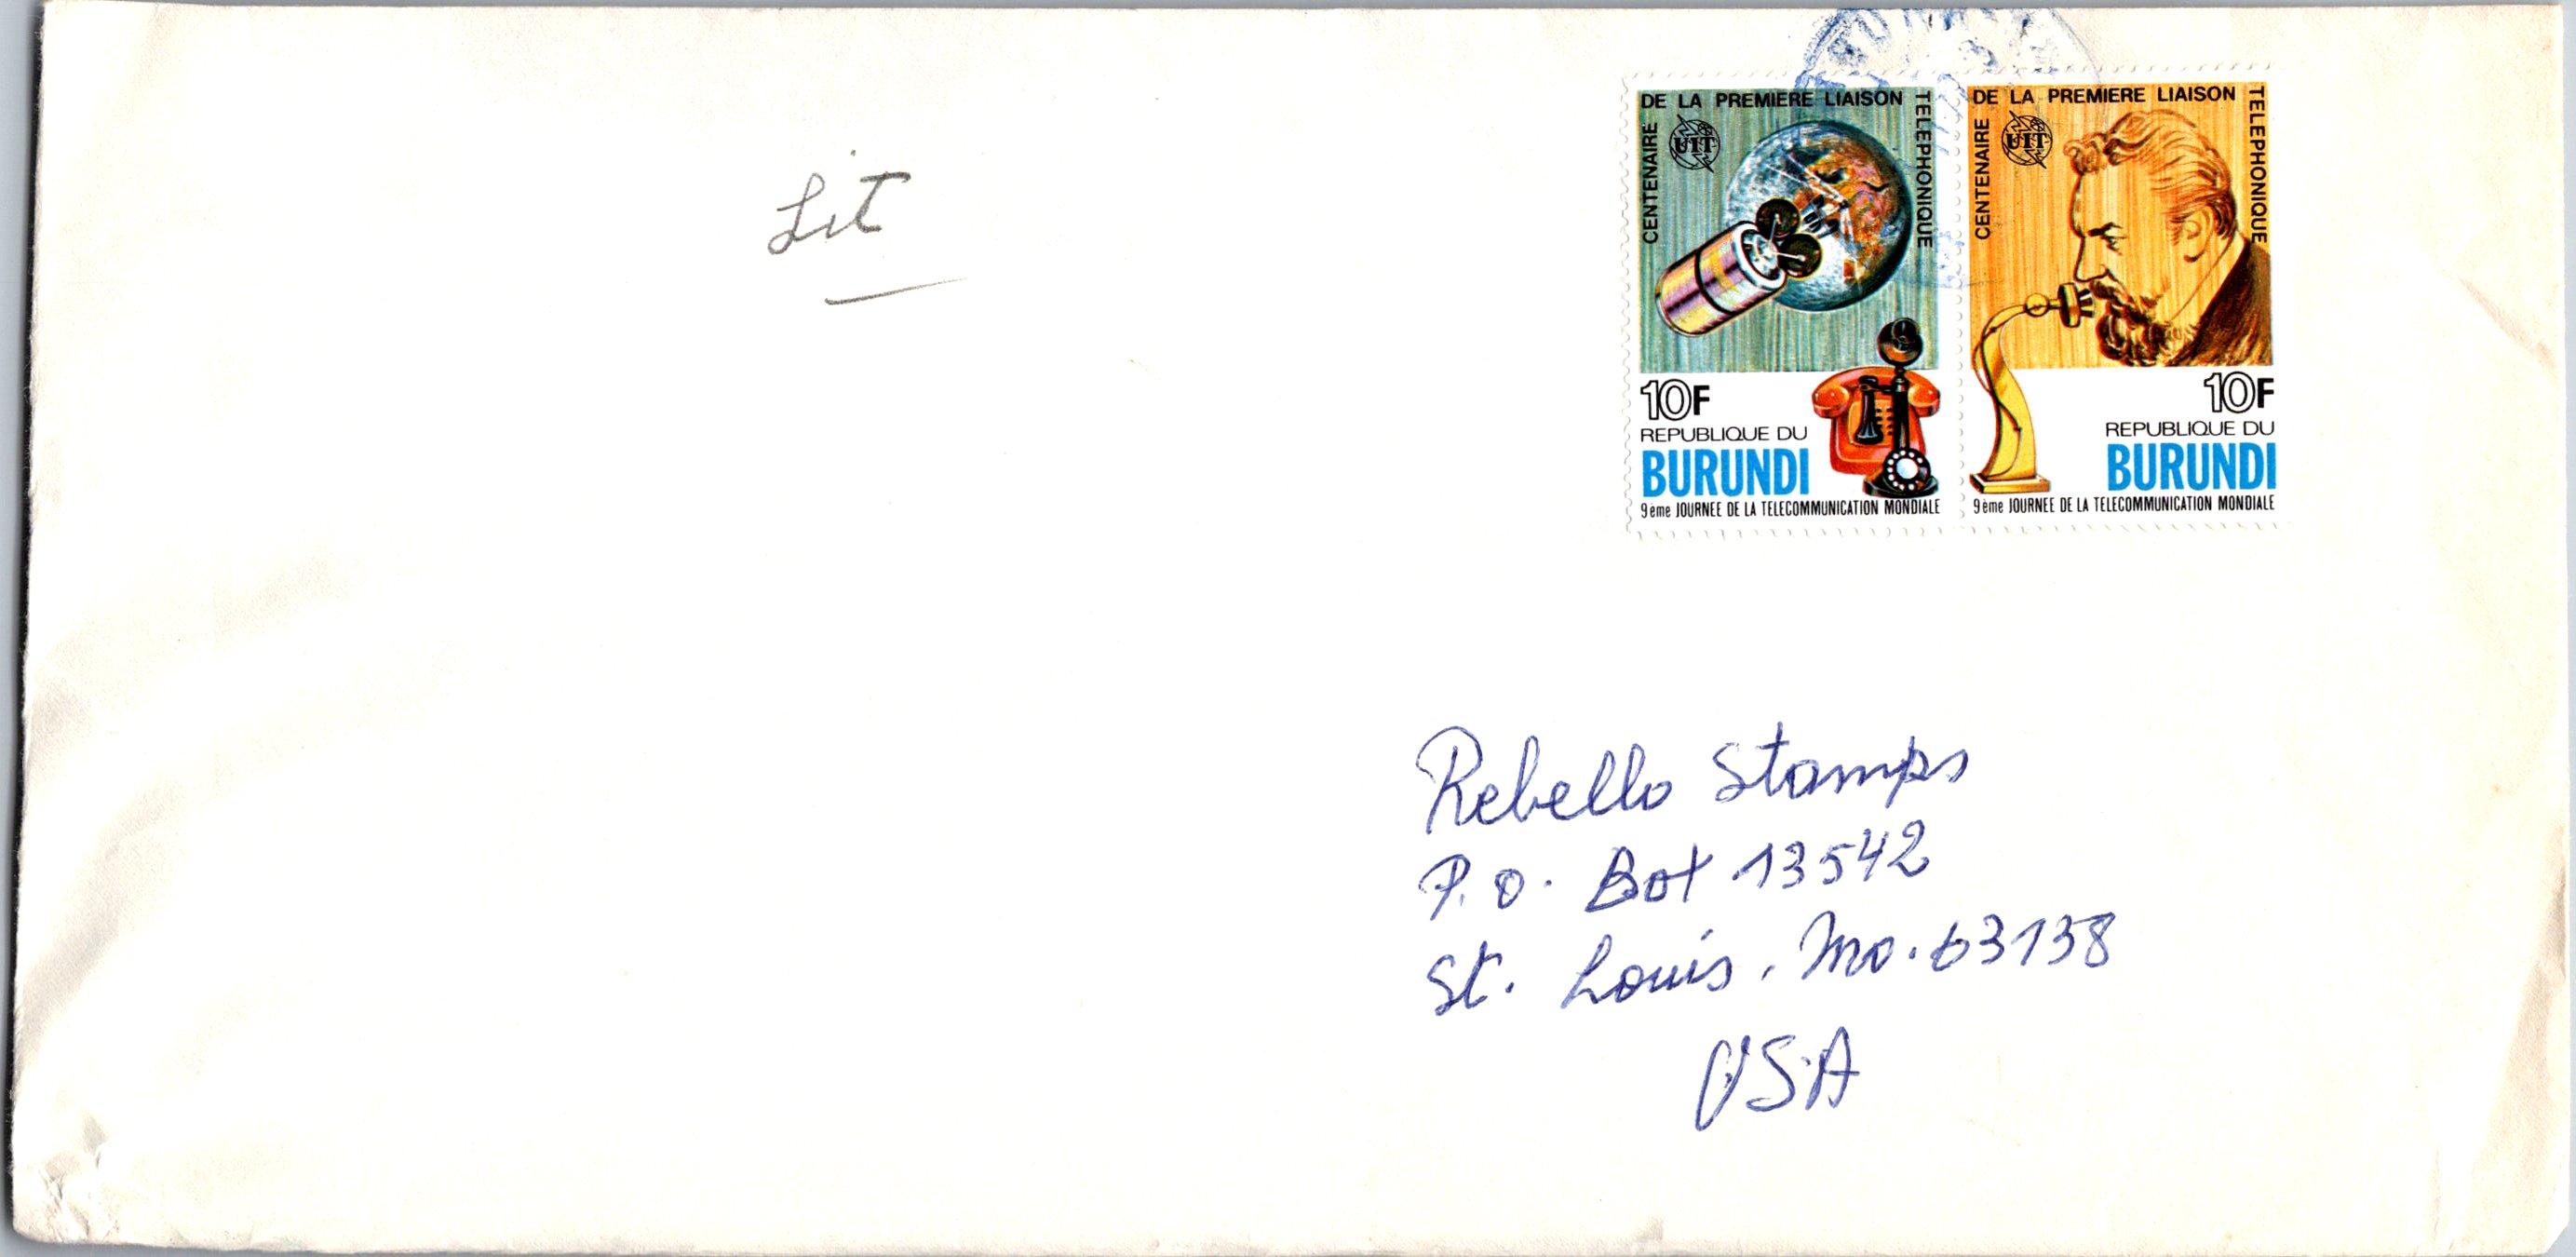 Lit
CENTENAIRE DE LA PREMIERE LIAISON TELEPHONIQUE
UIT
10F
REPUBLIQUE DU
BURUNDI
9eme JOURNEE DE LA TELECOMMUNICATION MONDIALE
CENTENAIRE DE LA PREMIERE LIAISON TELEPHONIQUE
UIT
10F
REPUBLIQUE DU
BURUNDI
9ème JOURNEE DE LA TELECOMMUNICATION MONDIALE
Rebello Stamps
P.O. Box 13542
St. Louis, Mo. 63138
USA